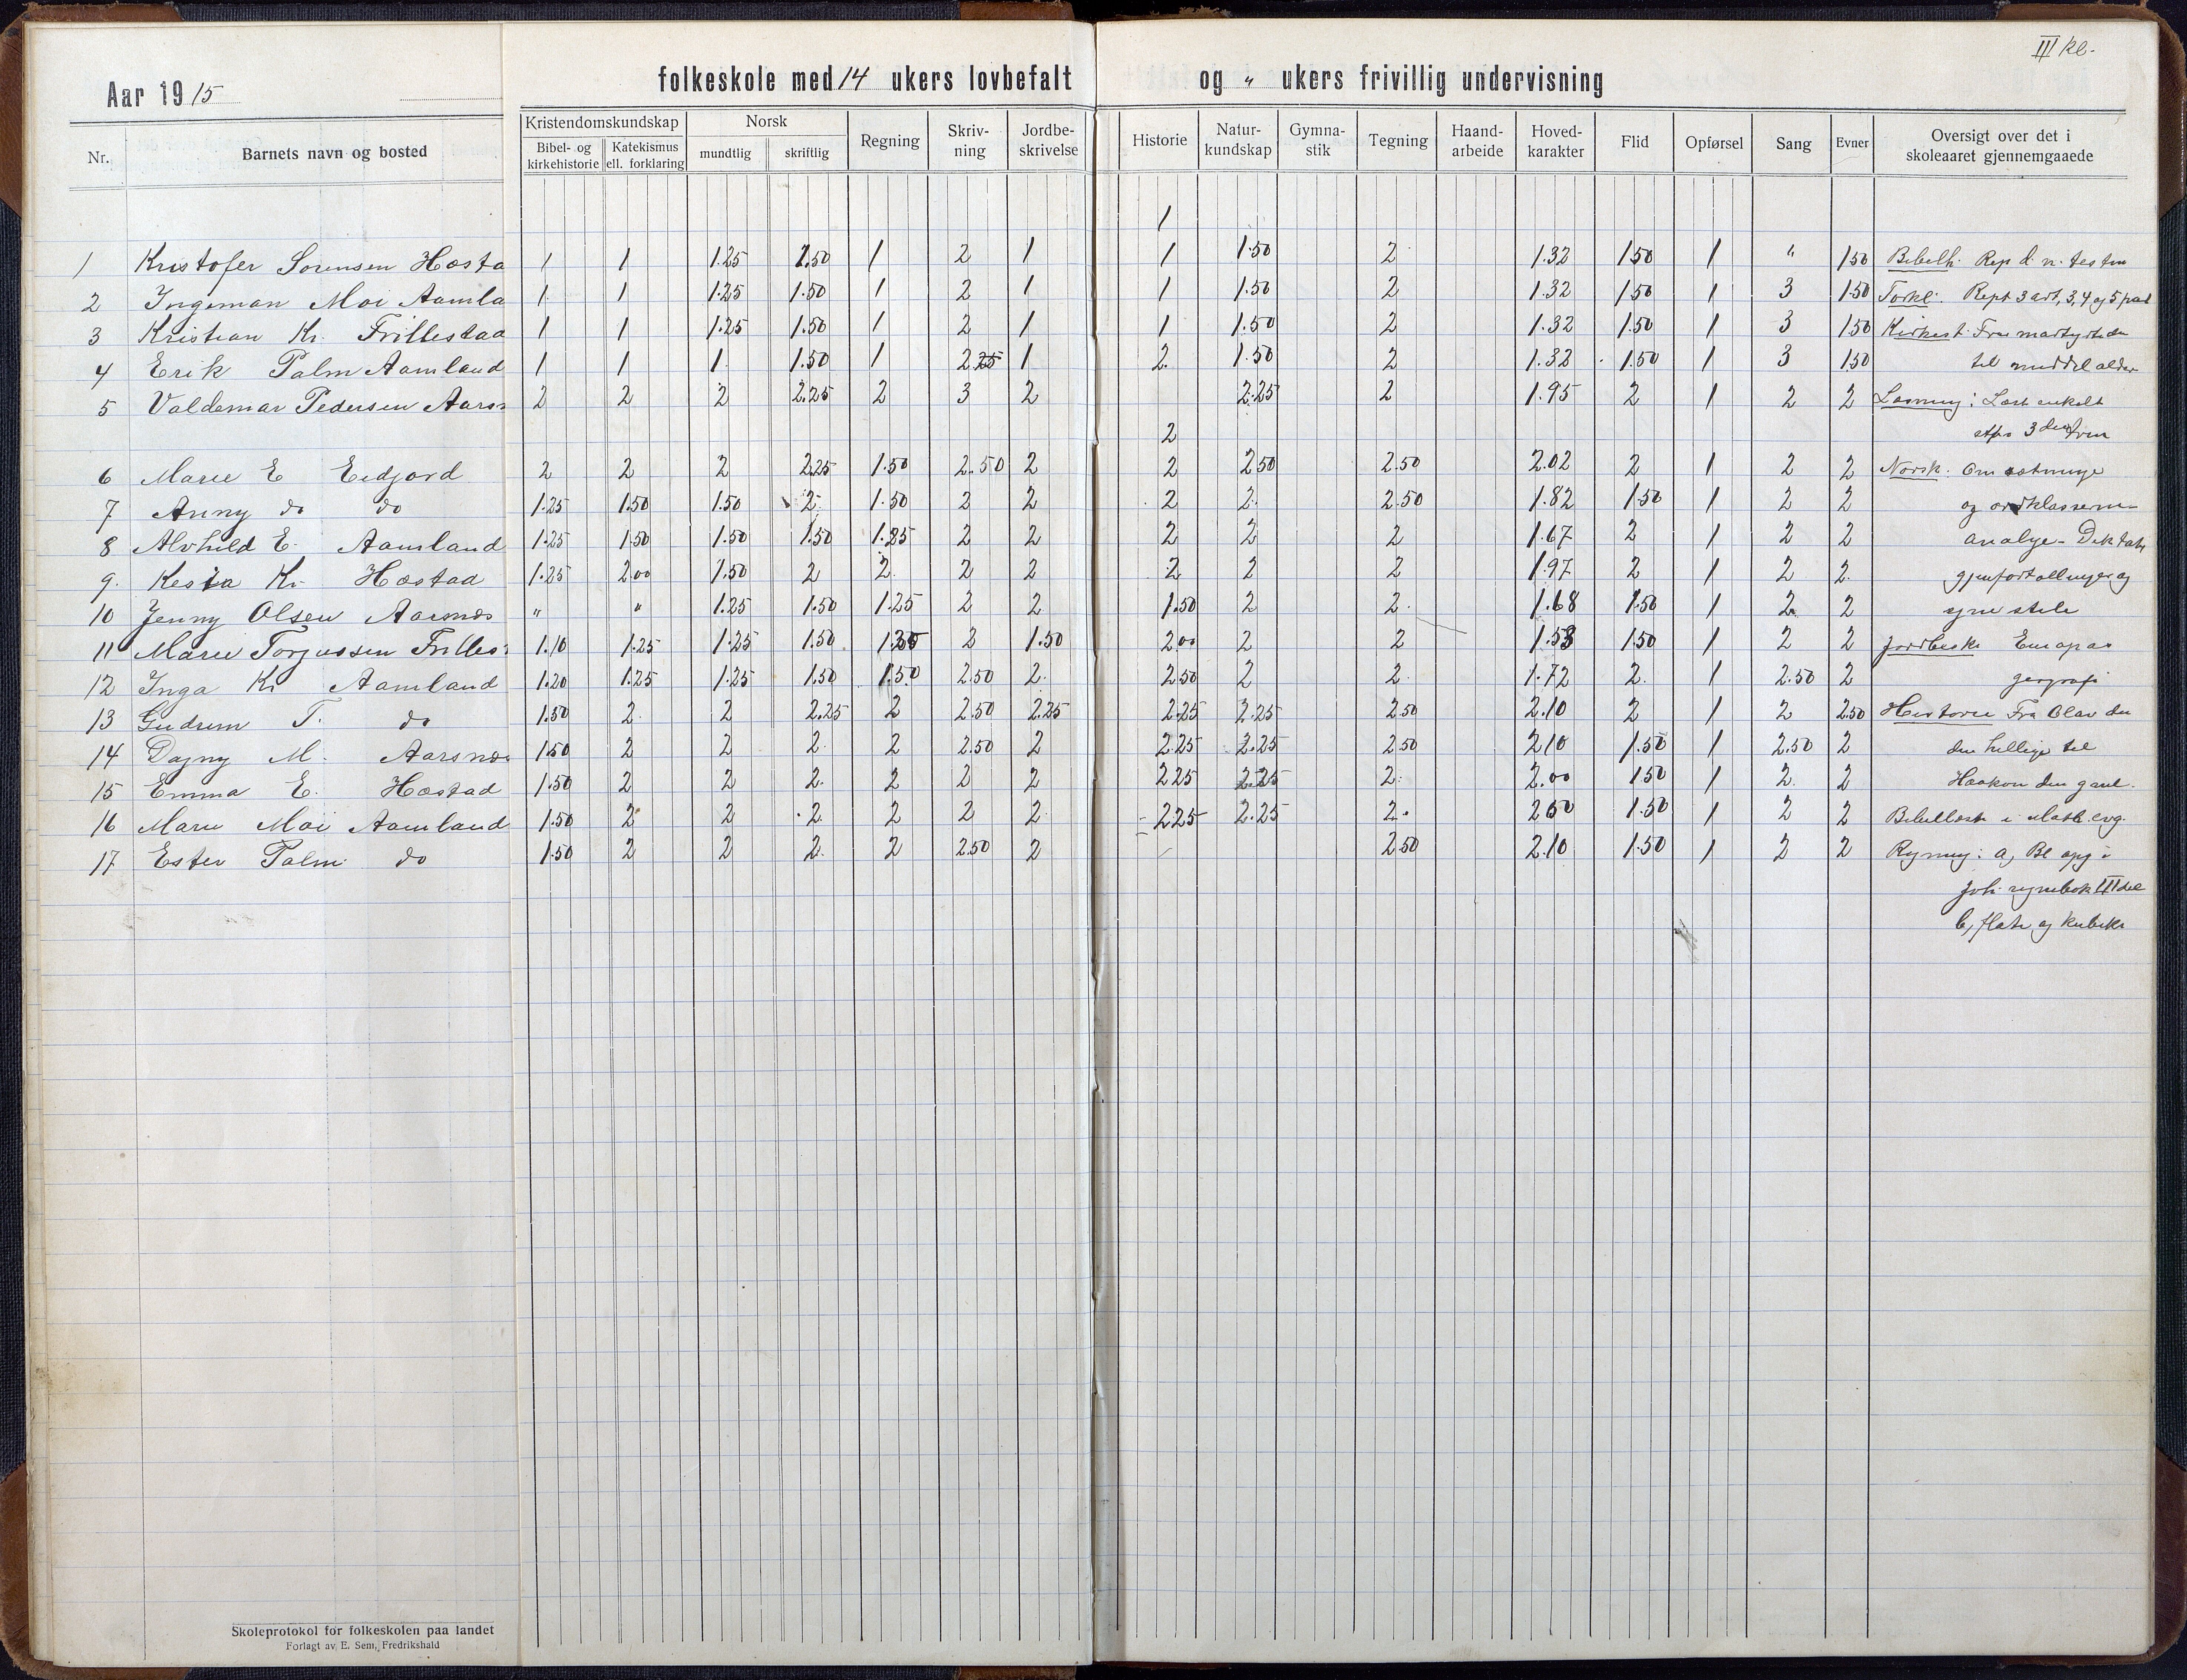 III kl.
Aar 1915 folkeskole med 14 ukers lovbefalt og " ukers frivillig undervisning
Nr. Barnets navn og bosted Kristendomskundskap Bibel- og kirkehistorie Katekismus ell. forklaring Norsk mundtlig skriftlig Regning Skriv-ning Jordbe-skrivelse Historie Natur-kundskap Gymna-stik Tegning Haand-arbeide Hoved-karakter Flid Opførsel Sang Evner Oversigt over det i skoleaaret gjennemgaaede
1
1 Kristofer Sørensen Hæsta 1 1 1.25 1.50 1 2 1 1 1.50 2 1.32 1.50 1 " 1.50 Bibelh. Rep d. n. testm
2 Ingeman Moi Aamla 1 1 1.25 1.50 1 2 1 1 1.50 2 1.32 1.50 1 3 1.50 Forkl. Rept 3 art, 3, 4 og 5 part
3 Kristian Kr. Frillestad 1 1 1.25 1.50 1 2 1 1 1.50 2 1.32 1.50 1 3 1.50 Kirkeh. Fra martyrtiden
4 Erik Palm Aamland 1 1 1 1.50 1 2.25 1 2. 1.50 2 1.32 1.50 1 3 1.50 til middelalder
5 Valdemar Pedersen Aarsn 2 2 2 2.25 2 3 2 2.25 2 1.95 2 1 2 2 Læsning: Læst enkelt
2 3
6 Marie E Eidjord 2 2 2 2.25 1.50 2.50 2 2 2.50 2.50 2.02 2 1 2 2 Norsk: Om sætninge
7 Anny do do 1.25 1.50 1.50 2 1.50 2 2 2 2 2.50 1.82 1.50 1 2 2 og ordklasserne
8 Alvhild E. Aamland 1.25 1.50 1.50 1.50 1.25 2 2 2 2 2 1.67 2 1 2 2 analyse - Diktat
9. Kesia Kr. Hæstad 1.25 2.00 1.50 2 2 2 2 2 2 2 1.97 2 1 2 2. gjenfortællinger og
10 Jenny Olsen Aarsnæs " " 1.25 1.50 1.25 2 2 1.50 2 2. 1.68 1.50 1 2 2 stile
11 Marie Torjussen Frilles 1.10 1.25 1.25 1.50 1.50 2 1.50 2.00 2 2 1.53 1.50 1 2 2 Jordbeskr Europas
12 Inga Kr Aamland 1.20 1.25 1.25 1.50 1.50 2.50 2. 2.50 2 2 1.72 2. 1 2.50 2 geografi
13 Gudrun T. do 1.50 2 2 2.25 2 2.50 2.25 2.25 2.25 2.50 2.10 2 1 2 2.50 Historie Fra Olav den
14 Dagny M. Aarsnæs 1.50 2 2 2 2 2.50 2 2.25 2.25 2.50 2.10 1.50 1 2.50 2 den hellige til
15 Emma E. Hæstad 1.50 2 2 2. 2 2 2 2.25 2.25 2. 2.00 1.50 1 2. 2 Haakon den gaml.
16 Marie Moi Aamland 1.50 2 2 2 2 2 2 2.25 2.25 2. 2.00 1.50 1 2 2 Bibellæsn i Math. evg.
17 Ester Palm do 1.50 2 2 2. 2 2.50 2 2.50 2.10 1.50 1 2 2 Regning: a, Bl opg i
Joh. regnebok III del
b, flate og kubikr
Skoleprotokol for folkeskolen paa landet
Forlagt av E. Sem, Fredrikshald